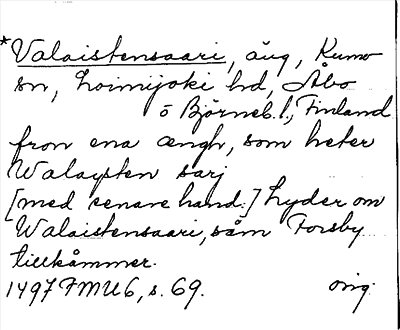 *Valaistensaari, äng, Kumo
sn, Loimijoki hd, Åbo
o Björneb. l., Finland
fron ena ængh, som heter
Walaysten sarj
[med senare hand:] Lyder om
Walaistensaari, såm Forsby
tillkåmmer.
1497 FMU 6, s. 69. orig.